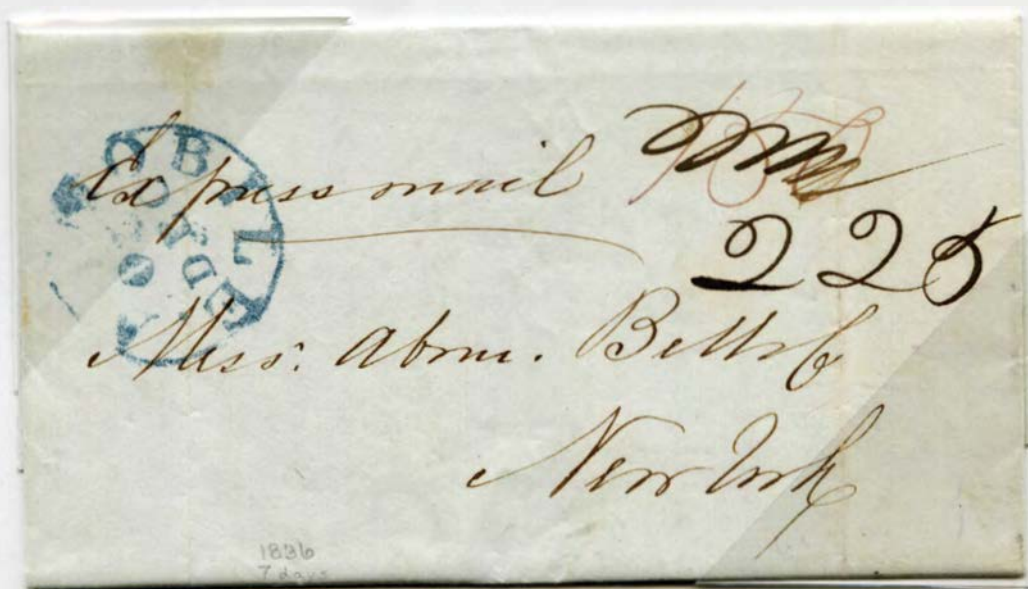 MOBILE
Express mail
225
Mess: Abm. Betts &
New York
1836
7 days